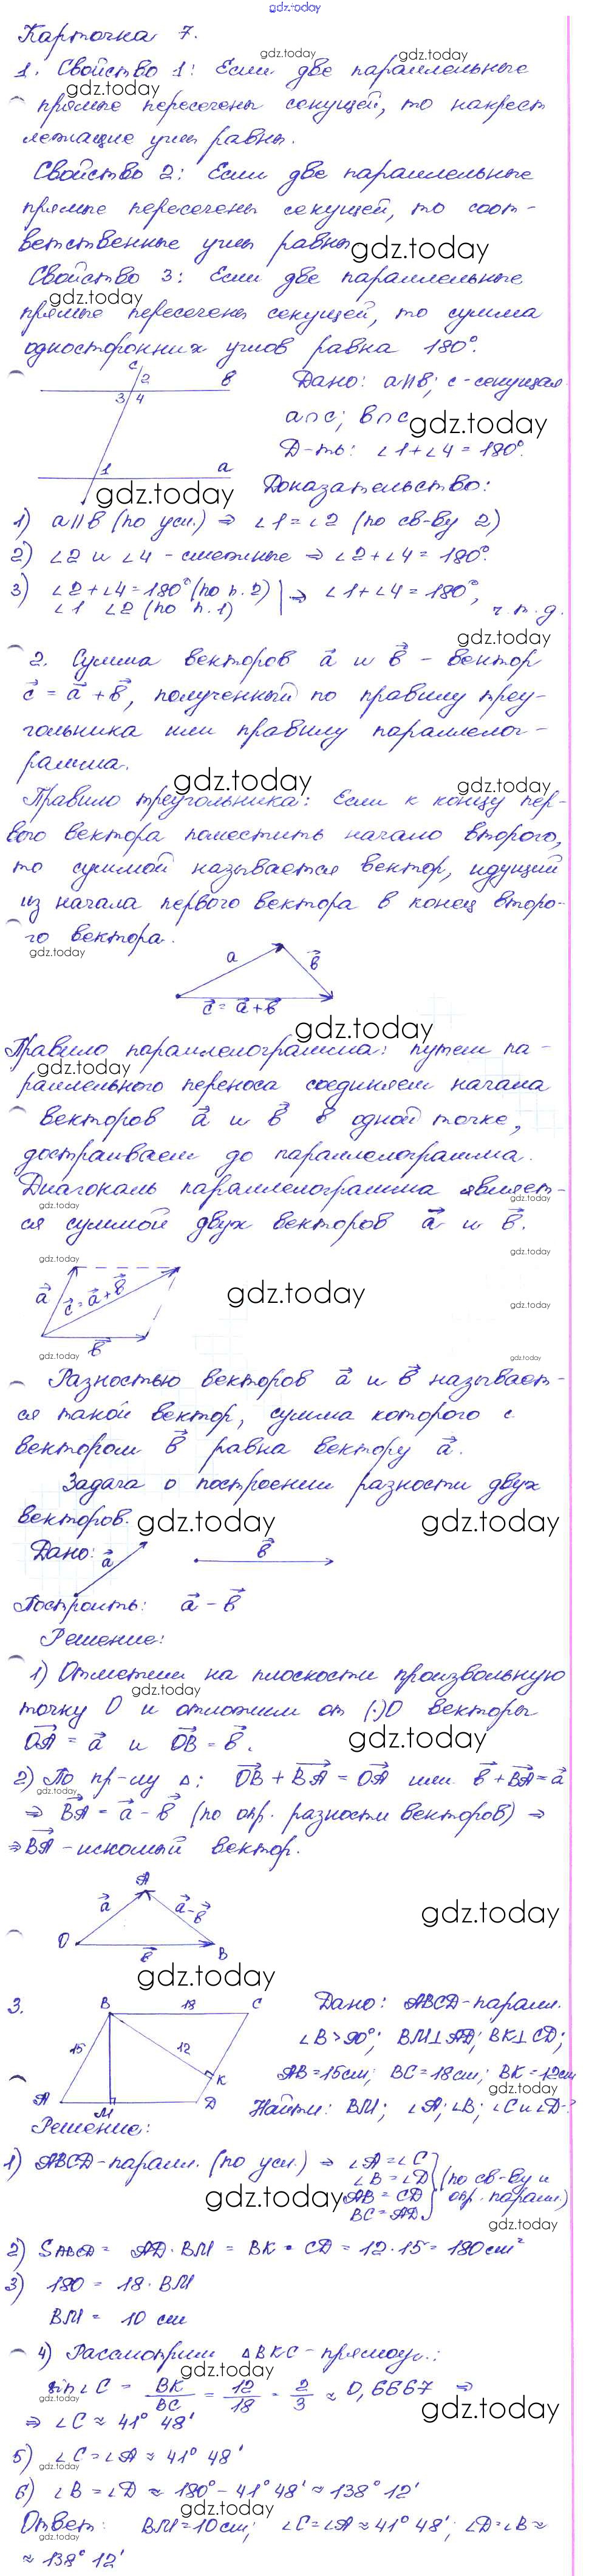 gdz.today
Карточка 7.
1. Свойство 1: Если две параллельные
прямые пересечены секущей, то накрест
лежащие углы равны.
Свойство 2: Если две параллельные
прямые пересечены секущей, то соот-
ветственные углы равны
Свойство 3: Если две параллельные
прямые пересечены секущей, то сумма
односторонних углов равна 180°.
c 2 b 3 4 1 a
Дано: a||b; c-секущая
a∩c; b∩c
Д-ть: ∠1+∠4=180°.
Доказательство:
1) a||b (по усл.) ⇒ ∠1=∠2 (по св-ву 2)
2) ∠2 и ∠4 - смежные ⇒ ∠2+∠4=180°.
3) ∠2+∠4=180° (по п. 2) | ⇒ ∠1+∠4=180°,
∠1 ∠2 (по п. 1)
ч.т.д.
2. Сумма векторов a⃗ и b⃗ - вектор
c⃗ = a⃗ + b⃗, полученный по правилу треу-
гольника или правилу параллелог-
рамма.
Правило треугольника: Если к концу пер-
вого вектора поместить начало второго,
то суммой называется вектор, идущий
из начала первого вектора в конец второ-
го вектора.
a b⃗
c⃗ = a⃗ + b⃗
Правило параллелограмма: путем па-
раллельного переноса соединяем начала
векторов a⃗ и b⃗ в одной точке,
достраиваем до параллелограмма.
Диагональ параллелограмма являет-
ся суммой двух векторов a⃗ и b⃗.
a⃗ c⃗ = a⃗ + b⃗
b⃗
Разностью векторов a⃗ и b⃗ называет-
ся такой вектор, сумма которого с
вектором b⃗ равна вектору a⃗.
Задача о построении разности двух
векторов.
Дано: a⃗ b⃗
Построить: a⃗ - b⃗
Решение:
1) Отметим на плоскости произвольную
точку O и отложим от (·)O векторы
OA⃗ = a⃗ и OB⃗ = b⃗.
2) По пр-лу Δ: OB⃗ + BA⃗ = OA⃗ или b⃗ + BA⃗ = a⃗
⇒ BA⃗ = a⃗ - b⃗ (по опр. разности векторов) ⇒
⇒ BA⃗ - искомый вектор.
A
a⃗ a⃗-b⃗
O b⃗ B
3. B 18 C
15 12
K
A M D
Дано: ABCD-парал.
∠B>90°; BM⊥AD; BK⊥CD;
AB=15см; BC=18см; BK=12см
Найти: BM; ∠A; ∠B; ∠C и ∠D-?
Решение:
1) ABCD-парал. (по усл.) ⇒ ∠A=∠C
∠B=∠D (по св-ву и
AB=CD опр. парал.)
BC=AD
2) SABCD = AD·BM = BK·CD = 12·15 = 180см²
3) 180 = 18·BM
BM = 10 см
4) Рассмотрим ΔBKC-прямоуг.:
sin∠C = BK/BC = 12/18 = 2/3 ≈ 0,6667 ⇒
⇒ ∠C ≈ 41° 48'
5) ∠C=∠A ≈ 41° 48'
6) ∠B=∠D ≈ 180° - 41° 48' ≈ 138° 12'
Ответ: BM=10см; ∠C=∠A≈41° 48'; ∠D=∠B≈
≈ 138° 12'